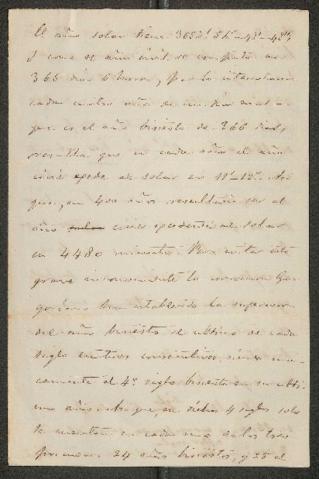 El año solar tiene 365 d. 5 h. 48' 48"
y como el año civil se computa en
365 días 6 horas, por la intercalacion
cada cuatro años de un día mas o
que es el año bisiesto de 366 dias,
resulta que en cada año el año
civil excede al solar en 11' 12". Asi
que, en 400 años resultaria ser el
año civil excedente al solar
en 4480 minutos. Para evitar este
grave inconveniente la correccion Gre
goriana ha establecido la supresion
del año bisiesto el ultimo de cada
siglo en tres consecutivos, siendo uni
camente el 4º siglo bisiesto en su ulti
mo año; de que, en dichos 4 siglos solo
se cuentan en cada uno de los tres
primeros 24 años bisiestos, y 25 el